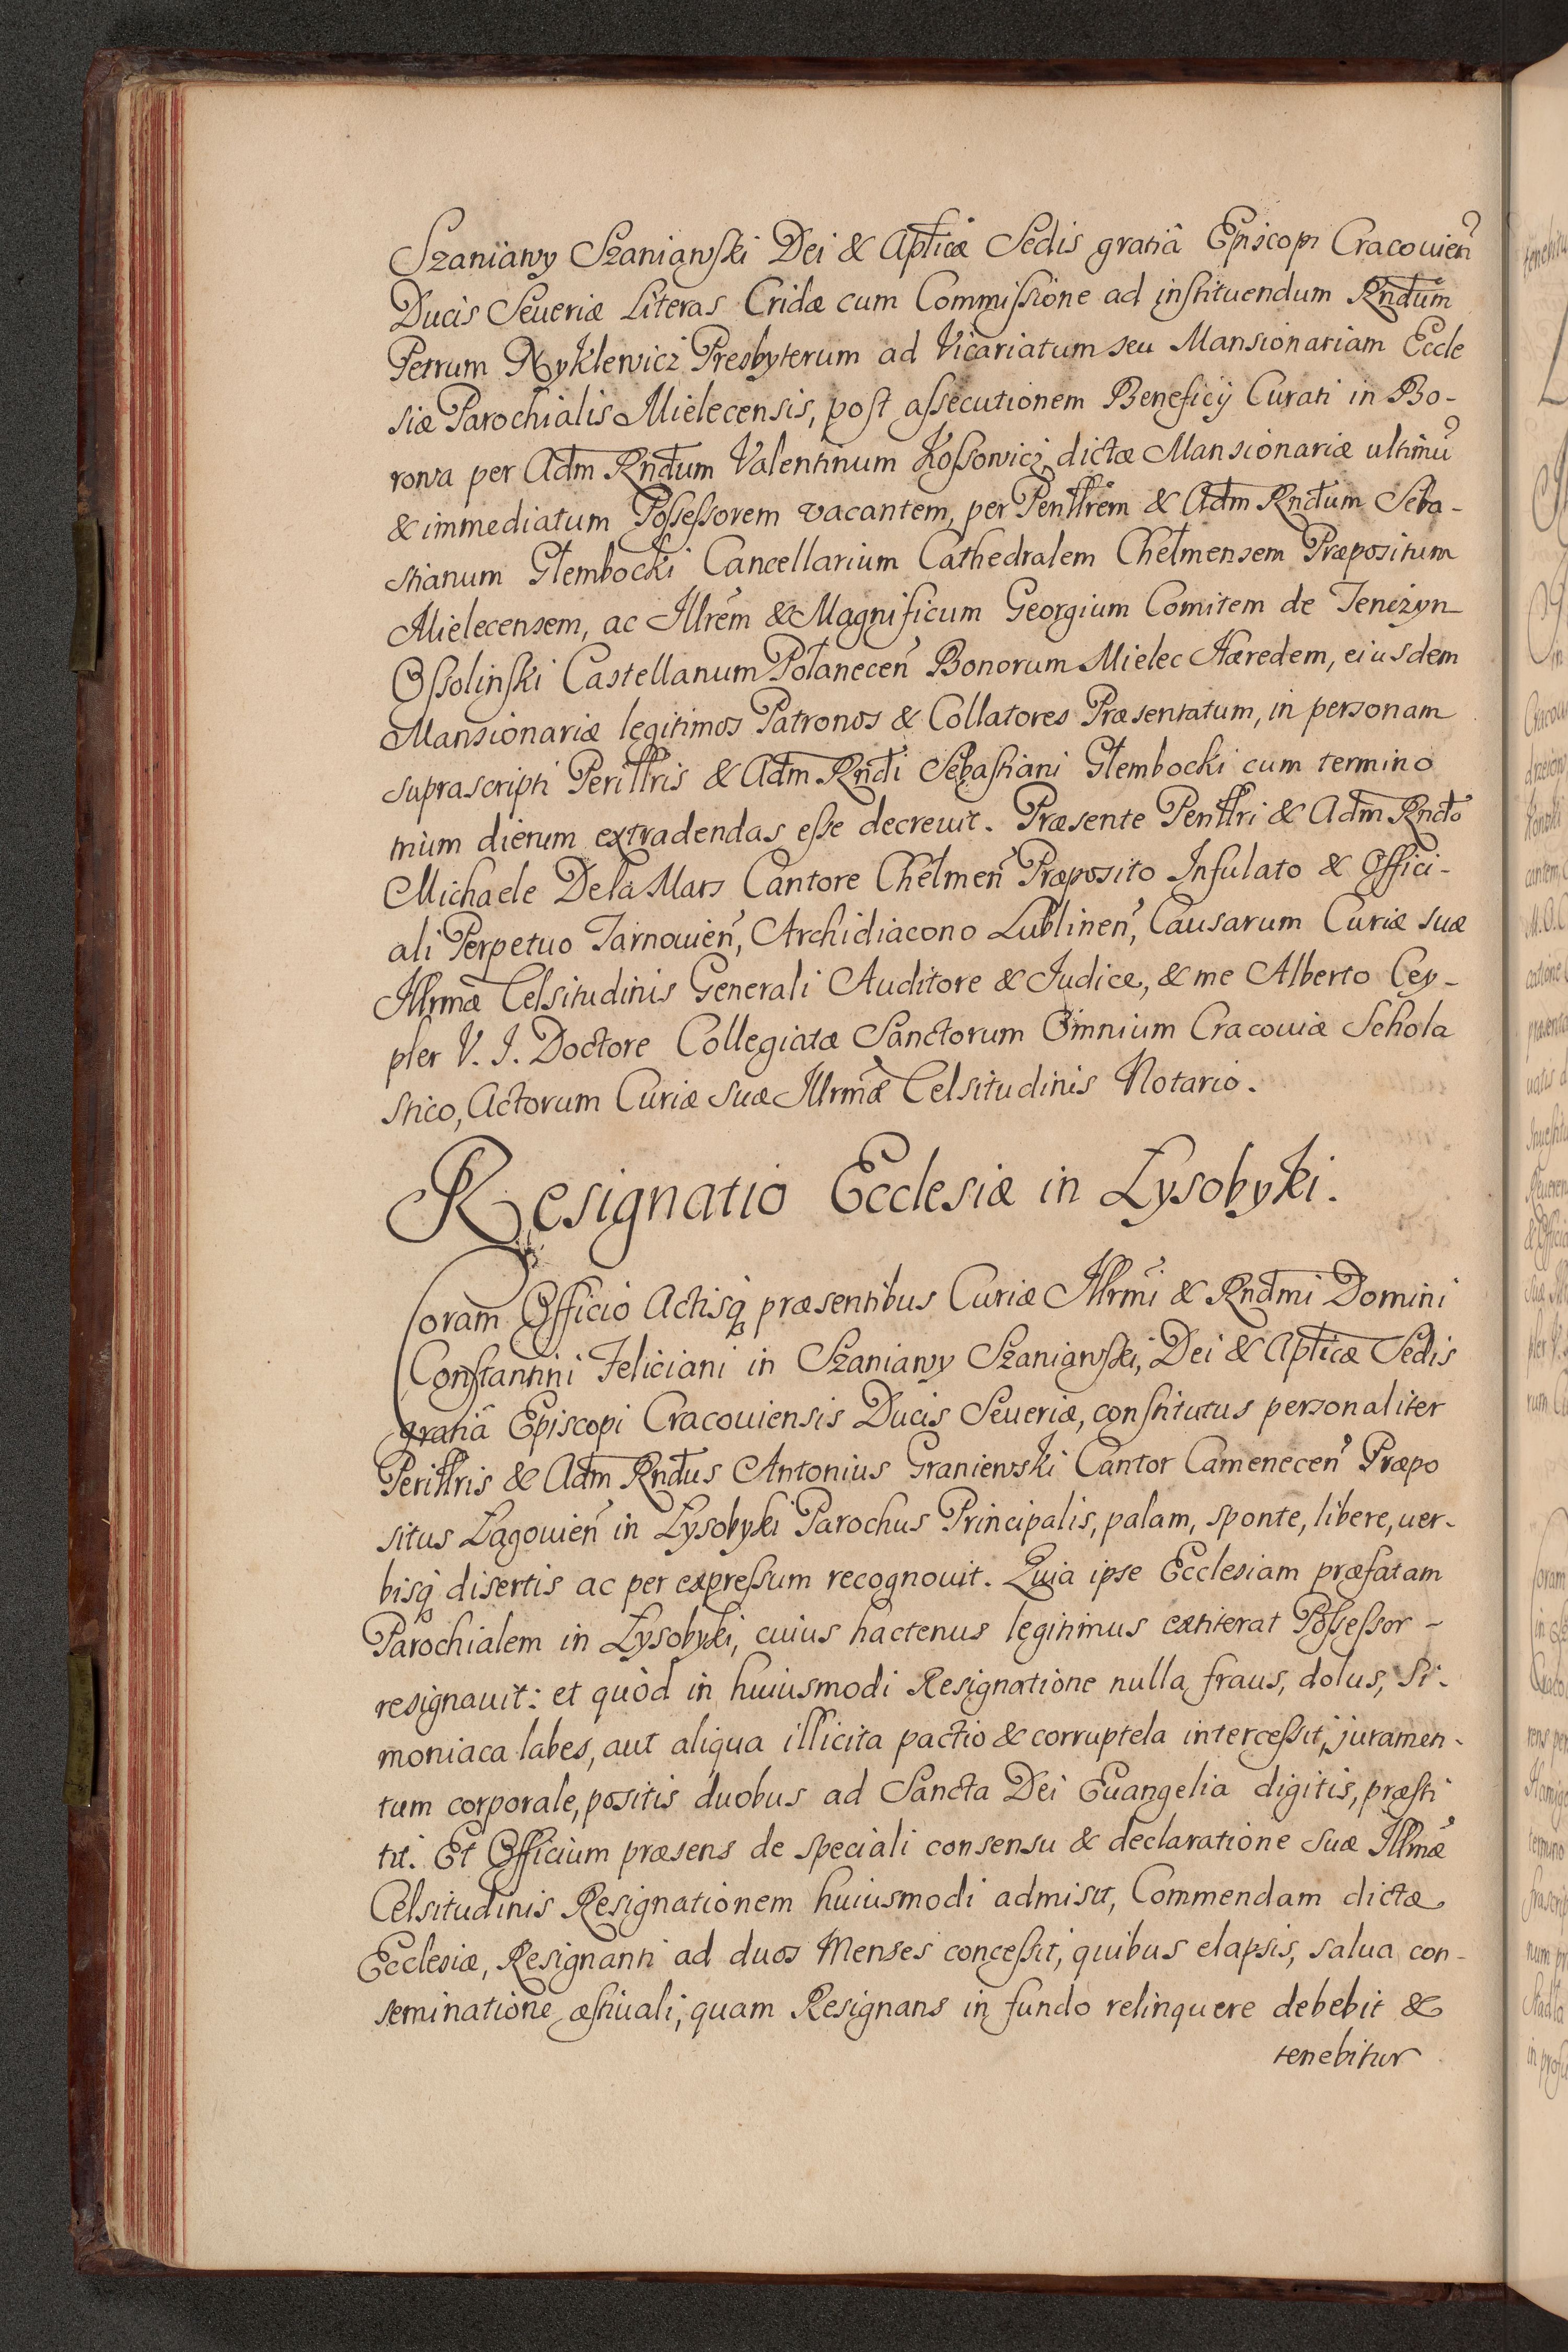 Szaniawy Szaniawski Dei & Aplicæ Sedis gratiâ Episcopi Cracouien
Ducis Seueriæ Literas Cridæ cum Commissione ad instituendum Rndum
Petrum Ryklewicz Presbyterum ad Vicariatum seu Mansionariam Eccle
siæ Parochialis Mielecensis, post assecutionem Beneficij Curati in Bo-
rowa per Adm Rndum Valentinum Kossowicz, dictæ Mansionariæ ultimũ
& immediatum Possessorem vacantem, per Perillrem & Adm Rndum Seba-
stianum Głembocki Cancellarium Cathedralem Chełmensem Præpositum
Mielecensem, ac Illrem & Magnificum Georgium Comitem de Tenczyn
Ossolinski Castellanum Połanecen Bonorum Mielec Hæredem, eiusdem
Mansionariæ legitimos Patronos & Collatores Præsentatum, in personam
suprascripti Perillris & Adm Rndi Sebastiani Głembocki cum termino
trium dierum extradendas esse decreuit. Præsente Perillri & Adm Rndo
Michaele De la Mars Cantore Chełmen Præposito Infulato & Offici-
ali Perpetuo Tarnouien, Archidiacono Lublinen, Causarum Curiæ suæ
Illrmæ Celsitudinis Generali Auditore & Iudice, & me Alberto Cey-
pler V. I. Doctore Collegiatæ Sanctorum Omnium Cracouiæ Schola
stico, Actorum Curiæ suæ Illrmæ Celsitudinis Notario.
Resignatio Ecclesiæ in Łysobyki.
Coram Officio Actisq præsentibus Curiæ Illrmi & Rndmi Domini
Constantini Feliciani in Szaniawy Szaniawski, Dei & Aplicæ Sedis
gratiâ Episcopi Cracouiensis Ducis Seueriæ, constitutus personaliter
Perillris & Adm Rndus Antonius Graniewski Cantor Camenecen Præpo
situs Łagouien in Łysobyki Parochus Principalis, palam, sponte, libere, uer-
bisq disertis ac per expressum recognouit. Quia ipse Ecclesiam præfatam
Parochialem in Łysobyki, cuius hactenus legitimus extiterat Possessor -
resignauit: et quòd in huiusmodi Resignatione nulla fraus, dolus, Si-
moniaca labes, aut aliqua illicita pactio & corruptela intercessit, juramen-
tum corporale, positis duobus ad Sancta Dei Euangelia digitis, præsti
tit. Et Officium præsens de speciali consensu & declaratione suæ Illmæ
Celsitudinis Resignationem huiusmodi admisit, Commendam dictæ
Ecclesiæ, Resignanti ad duos Menses concessit, quibus elapsis, salua con-
seminatione æstiuali, quam Resignans in fundo relinquere debebit &
tenebitur